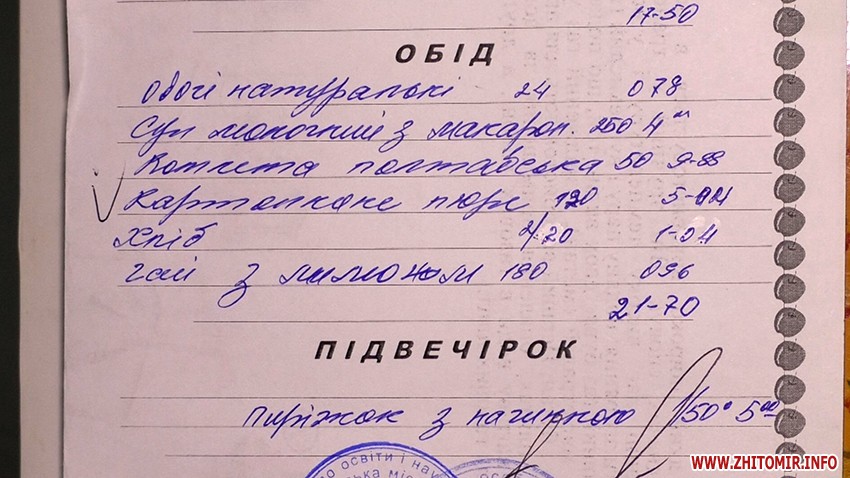 17-50
ОБІД
Овочі натуральні 24 078
Суп молочний з макарон. 250 4
Котлета полтавська 50 9-88
Картопляне пюре 120 5-04
Хліб 2/20 1-04
Чай з лимоном 180 096
21-70
ПІДВЕЧІРОК
Пиріжок з начинкою 1/50 5 00
о освіти і нау
ська міс
WWW.ZHITOMIR.INFO